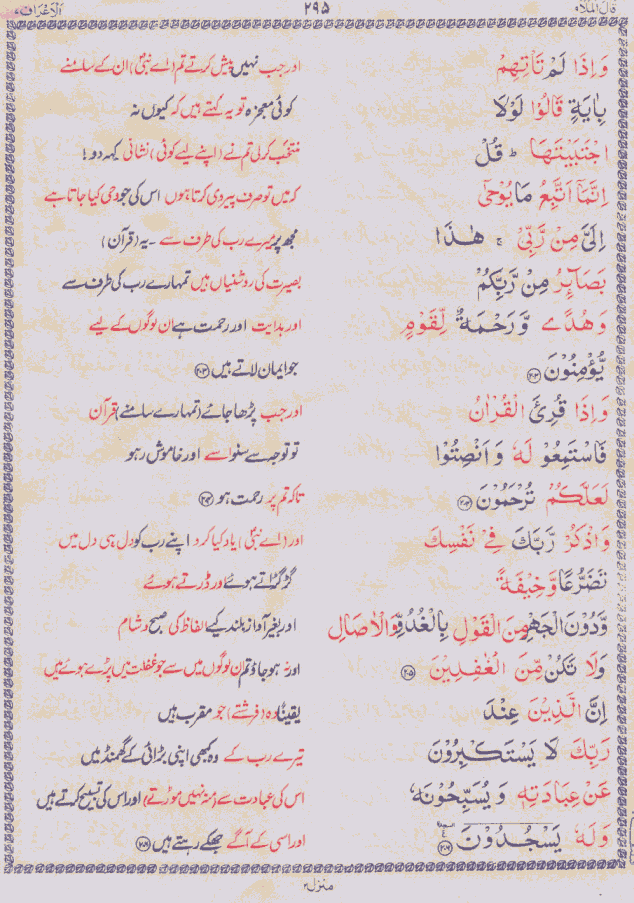 قال الملاه ٢٩٥ الاعراف
وَاِذَا لَمْ تَاْتِهِمْ اور جب نہیں پیش کرتے تم (اے نبیؐ) ان کے سامنے
بِاٰيَةٍ قَالُوْا لَوْلَا کوئی معجزہ تو یہ کہتے ہیں کہ کیوں نہ
اجْتَبَيْتَهَا ؕ قُلْ منتخب کر لی تم نے (اپنے لیے کوئی) نشانی کہہ دو!
اِنَّمَاۤ اَتَّبِعُ مَا يُوْحٰٓى کہ میں تو صرف پیروی کرتا ہوں اس کی جو وحی کیا جاتا ہے
اِلَىَّ مِنْ رَّبِّىْ ۚ هٰذَا مجھ پر میرے رب کی طرف سے ۔ یہ (قرآن)
بَصَآئِرُ مِنْ رَّبِّكُمْ بصیرت کی روشنیاں ہیں تمہارے رب کی طرف سے
وَهُدًى وَّرَحْمَةٌ لِّقَوْمٍ اور ہدایت اور رحمت ہے ان لوگوں کے لیے
يُّؤْمِنُوْنَ ۝٢٠٣ جو ایمان لاتے ہیں ۝٢٠٣
وَاِذَا قُرِئَ الْقُرْاٰنُ اور جب پڑھا جائے (تمہارے سامنے) قرآن
فَاسْتَمِعُوْا لَهٗ وَاَنْصِتُوْا تو توجہ سے سنو اسے اور خاموش رہو
لَعَلَّكُمْ تُرْحَمُوْنَ ۝٢٠٤ تاکہ تم پر رحمت ہو ۝٢٠٤
وَاذْكُرْ رَّبَّكَ فِىْ نَفْسِكَ اور (اے نبیؐ) یاد کیا کرو اپنے رب کو دل ہی دل میں
تَضَرُّعًا وَّخِيْفَةً گڑگڑاتے ہوئے اور ڈرتے ہوئے
وَّدُوْنَ الْجَهْرِ مِنَ الْقَوْلِ بِالْغُدُوِّ وَالْاٰصَالِ اور بغیر آواز بلند کیے الفاظ کی صبح و شام
وَلَا تَكُنْ مِّنَ الْغٰفِلِيْنَ ۝٢٠٥ اور نہ ہو جاؤ تم ان لوگوں میں سے جو غفلت میں پڑے ہوئے ہیں
اِنَّ الَّذِيْنَ عِنْدَ یقیناً وہ (فرشتے) جو مقرب ہیں
رَبِّكَ لَا يَسْتَكْبِرُوْنَ تیرے رب کے وہ کبھی اپنی بڑائی کے گھمنڈ میں
عَنْ عِبَادَتِهٖ وَيُسَبِّحُوْنَهٗ اس کی عبادت سے (منہ نہیں موڑتے) اور اس کی تسبیح کرتے ہیں
وَلَهٗ يَسْجُدُوْنَ ۝٢٠٦ اور اسی کے آگے جھکے رہتے ہیں ۝٢٠٦
منزل ٢